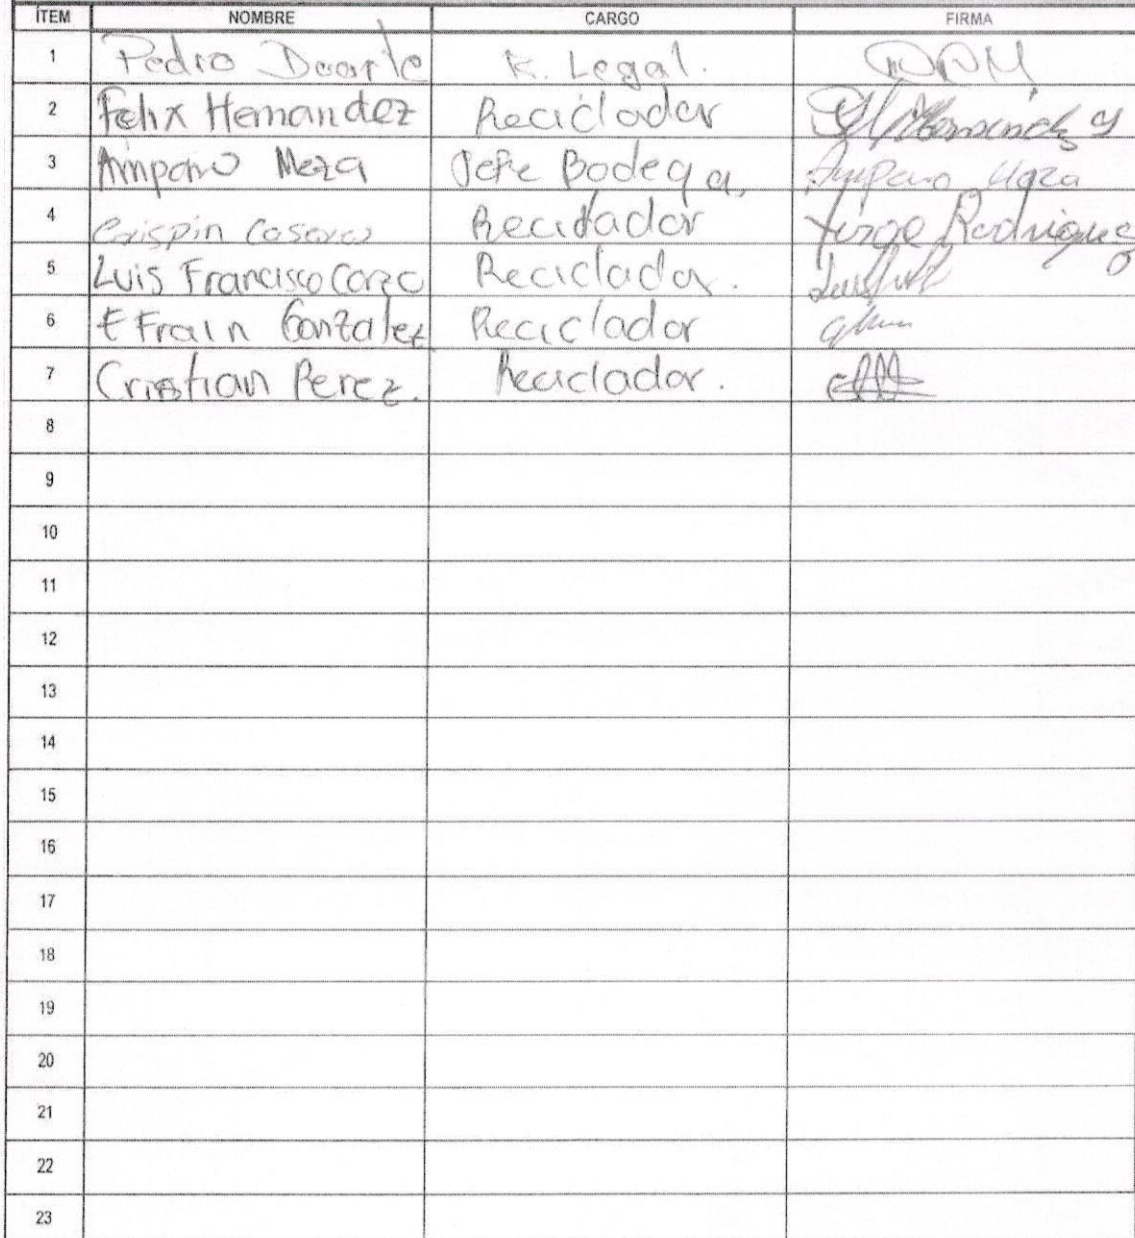 ÍTEM NOMBRE CARGO FIRMA
1 Pedro Duarte R. Legal.
2 Felix Hernandez Reciclador
3 Amparo Meza Jefe Bodega. Amparo Meza
4 Crispin Reciclador Jorge Rodriguez
5 Luis Francisco Corzo Reciclador.
6 EFrain Gonzalez Reciclador
7 Cristian Perez. Reciclador.
8
9
10
11
12
13
14
15
16
17
18
19
20
21
22
23